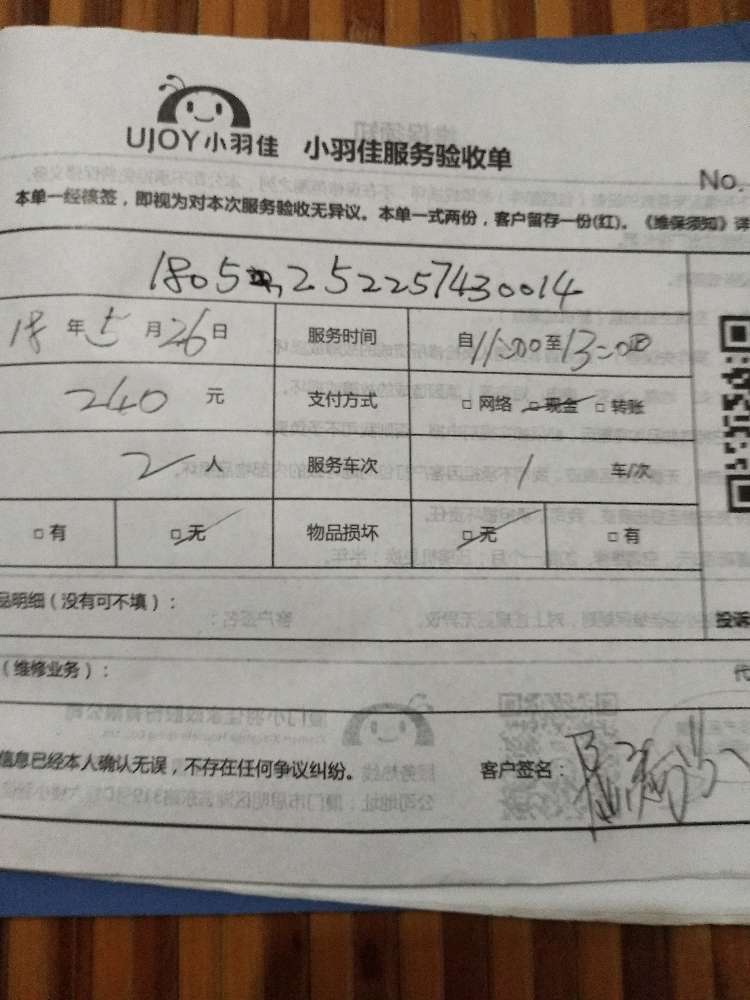 UJOY小羽佳 小羽佳服务验收单
No.
本单一经核签，即视为对本次服务验收无异议。本单一式两份，客户留存一份(红)。《维保须知》详
1805 252257430014
18 年 5 月 26 日 服务时间 自 11:00 至 13:00
240 元 支付方式 □ 网络 □ 现金 □ 转账
2 人 服务车次 1 车/次
□ 有 □ 无 物品损坏 □ 无 □ 有
品明细（没有可不填）：
投诉
（维修业务）：
代
信息已经本人确认无误，不存在任何争议纠纷。 客户签名：